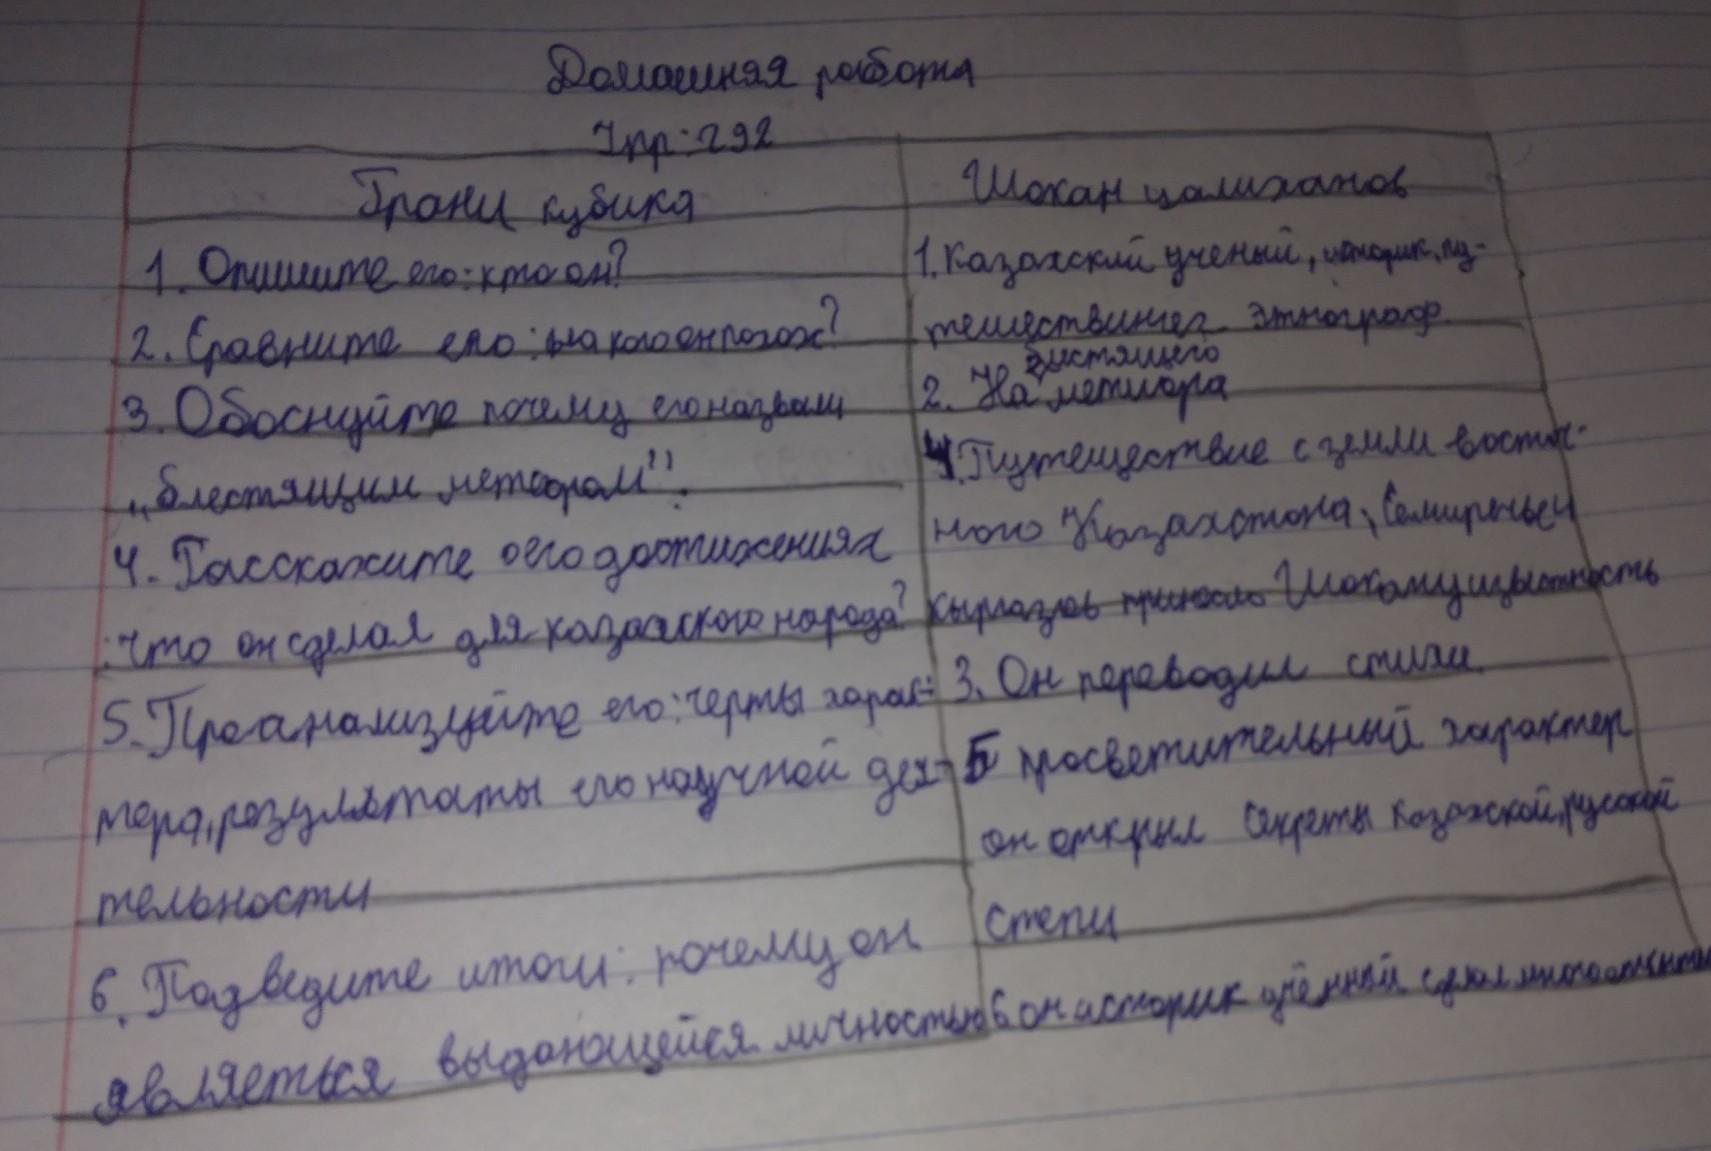 Домашняя работа
Упр: 292
Грани кубика
1. Опишите его: кто он?
2. Сравните его: на кого он похож?
3. Обоснуйте почему его назвали
„блестящим метеором".
4. Расскажите о его достижениях
: что он сделал для казахского народа?
5. Проанализуйте его: черты харак-
тера, результаты его научной дея-
тельности
6. Подведите итоги: почему он
являеться выдающейся личностью
Шокан
1. Казахский ученый, историк, пу-
тешественник этнограф
блестящего
2. На метиора
4. Путешествие с земли восточ-
ного Казахстана, Семиреньеи
Шокану
3. Он переводил стихи.
5 просветительный характер
он открыл секреты казахской, русской
степи
6 он историк учённый сделал много